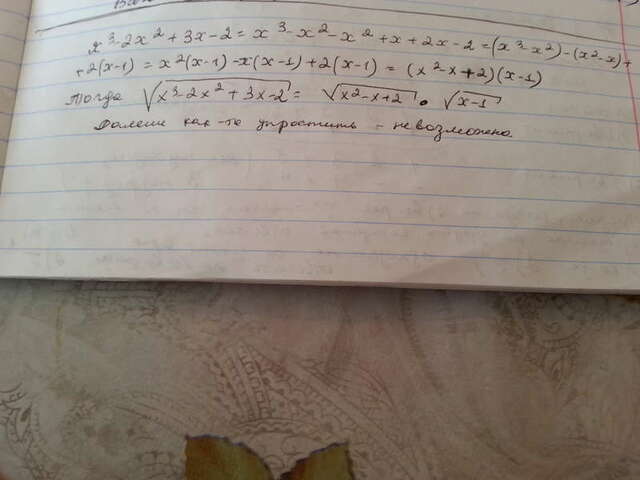 x³-2x²+3x-2=x³-x²-x²+x+2x-2=(x³-x²)-(x²-x)+
+2(x-1)=x²(x-1)-x(x-1)+2(x-1)=(x²-x+2)(x-1)
Тогда √(x³-2x²+3x-2)=√(x²-x+2)•√(x-1)
Дальше как-то упростить - невозможно.